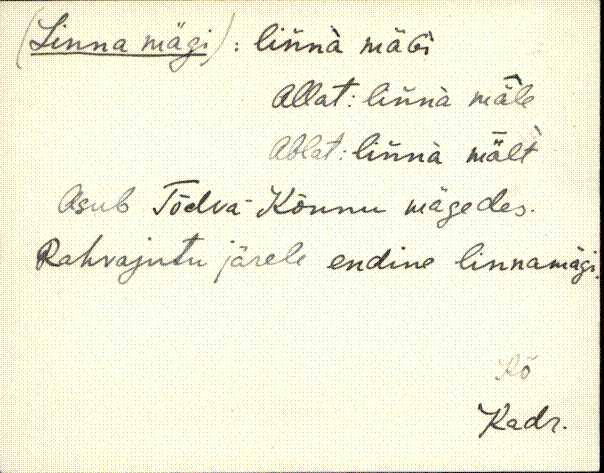 (Linna mägi): lin̆nà mäɢì
Allat: lin̆nà mä̆le
Ablat: lin̆nà mä̆lt̀
Asub Tõdva-Kõnnu mägedes.
Rahvajutu järele endine linnamägi.
Kõ
Kadr.